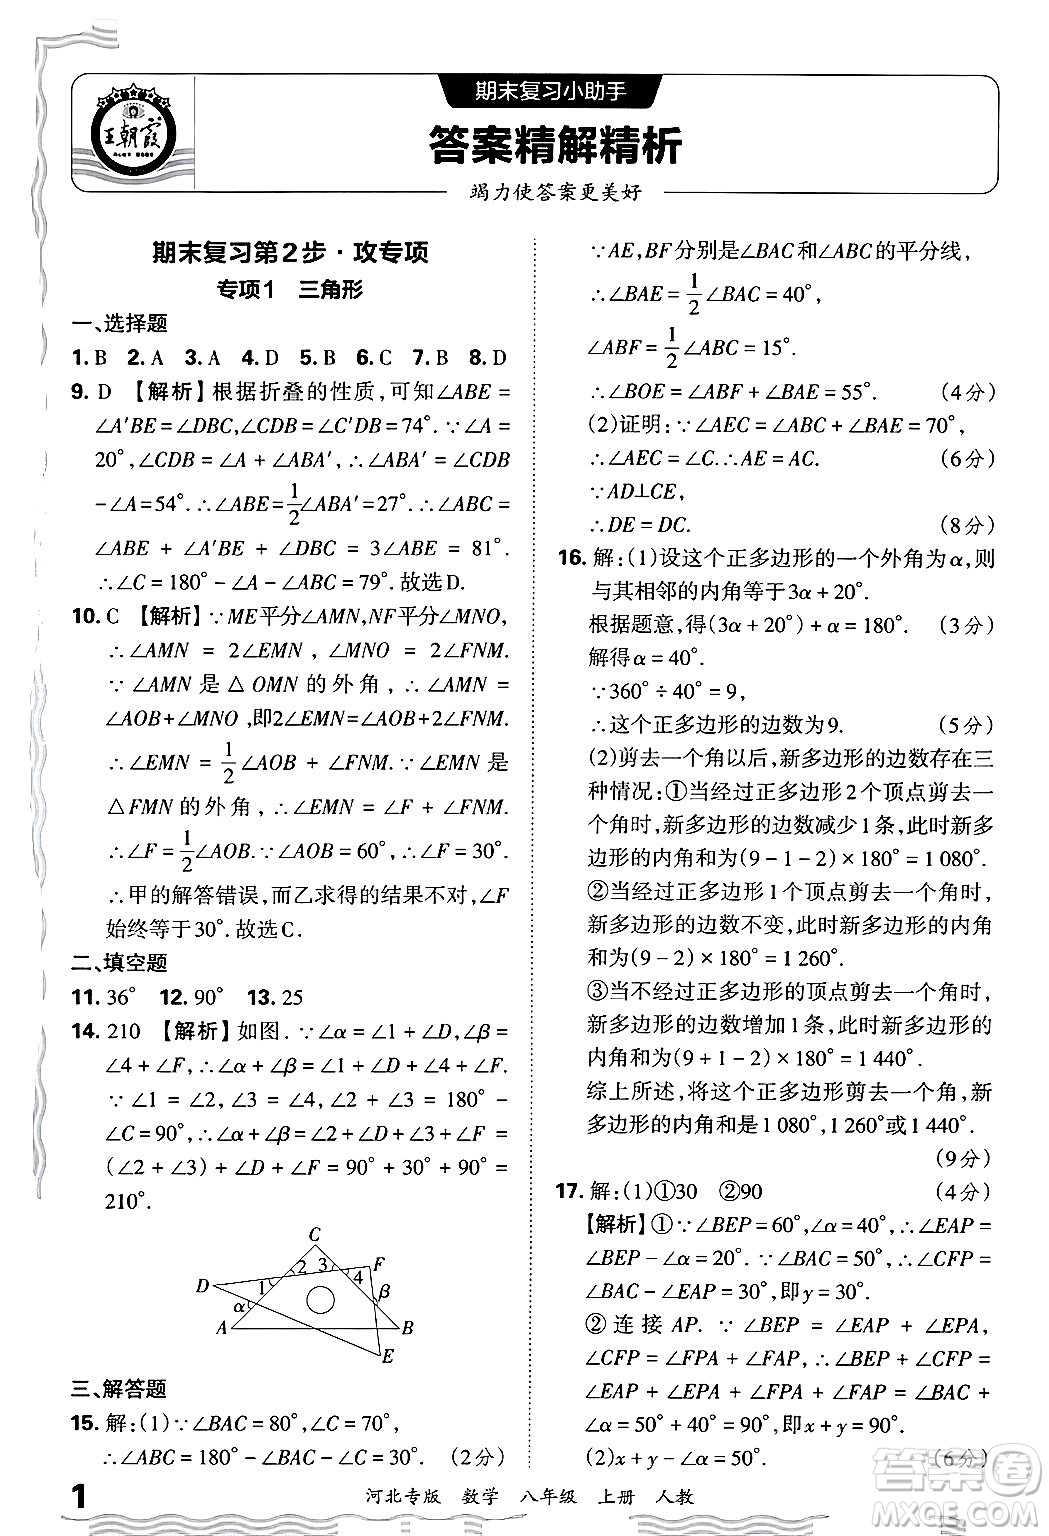 期末复习小助手
王朝霞
答案精解精析
竭力使答案更美好
期末复习第2步·攻专项
专项1 三角形
一、选择题
1. B 2. A 3. A 4. D 5. B 6. C 7. B 8. D
9. D 【解析】根据折叠的性质,可知∠ABE =
∠A′BE = ∠DBC,∠CDB = ∠C′DB = 74°. ∵∠A =
20°,∠CDB = ∠A + ∠ABA′, ∴∠ABA′ = ∠CDB
-∠A = 54°. ∴∠ABE = 1/2∠ABA′ = 27°. ∴∠ABC =
∠ABE + ∠A′BE + ∠DBC = 3∠ABE = 81°.
∴∠C = 180° - ∠A - ∠ABC = 79°. 故选D.
10. C 【解析】∵ME平分∠AMN,NF平分∠MNO,
∴∠AMN = 2∠EMN , ∠MNO = 2∠FNM.
∵∠AMN 是 △OMN 的外角, ∴∠AMN =
∠AOB+∠MNO,即2∠EMN=∠AOB+2∠FNM.
∴∠EMN = 1/2∠AOB + ∠FNM. ∵∠EMN 是
△FMN 的外角, ∴∠EMN = ∠F + ∠FNM.
∴∠F = 1/2∠AOB. ∵∠AOB = 60°, ∴∠F = 30°.
∴甲的解答错误,而乙求得的结果不对,∠F
始终等于30°. 故选C.
二、填空题
11. 36° 12. 90° 13. 25
14. 210 【解析】如图. ∵∠α = ∠1 + ∠D,∠β =
∠4 + ∠F, ∴∠α + ∠β = ∠1 + ∠D + ∠4 + ∠F.
∵ ∠1 = ∠2, ∠3 = ∠4, ∠2 + ∠3 = 180° -
∠C = 90°, ∴ ∠α + ∠β = ∠1 + ∠D + ∠4 + ∠F =
(∠2 + ∠3) + ∠D + ∠F = 90° + 30° + 90° =
210°.
C
D 1 2 3 4 F
α β
A B
E
三、解答题
15. 解:(1)∵∠BAC = 80°,∠C = 70°,
∴∠ABC = 180° - ∠BAC - ∠C = 30°. (2分)
∵AE,BF分别是∠BAC和∠ABC的平分线,
∴∠BAE = 1/2∠BAC = 40°,
∠ABF = 1/2∠ABC = 15°.
∴∠BOE = ∠ABF + ∠BAE = 55°. (4分)
(2)证明:∵∠AEC = ∠ABC + ∠BAE = 70°,
∴∠AEC = ∠C. ∴AE = AC. (6分)
∵AD⊥CE,
∴DE = DC. (8分)
16. 解:(1)设这个正多边形的一个外角为α,则
与其相邻的内角等于3α + 20°.
根据题意,得(3α + 20°) + α = 180°. (3分)
解得α = 40°.
∵360° ÷ 40° = 9,
∴这个正多边形的边数为9. (5分)
(2)剪去一个角以后,新多边形的边数存在三
种情况:①当经过正多边形2个顶点剪去一
个角时,新多边形的边数减少1条,此时新多
边形的内角和为(9 - 1 - 2) × 180° = 1 080°.
②当经过正多边形1个顶点剪去一个角时,
新多边形的边数不变,此时新多边形的内角
和为(9 - 2) × 180° = 1 260°.
③当不经过正多边形的顶点剪去一个角时,
新多边形的边数增加1条,此时新多边形的
内角和为(9 + 1 - 2) × 180° = 1 440°.
综上所述,将这个正多边形剪去一个角,新
多边形的内角和是1 080°,1 260°或1 440°.
(9分)
17. 解:(1)①30 ②90 (4分)
【解析】①∵∠BEP = 60°,∠α = 40°, ∴∠EAP =
∠BEP - ∠α = 20°. ∵∠BAC = 50°, ∴∠CFP =
∠BAC - ∠EAP = 30°,即y = 30°.
②连接 AP. ∵ ∠BEP = ∠EAP + ∠EPA,
∠CFP = ∠FPA + ∠FAP, ∴∠BEP + ∠CFP =
∠EAP + ∠EPA + ∠FPA + ∠FAP = ∠BAC +
∠α = 50° + 40° = 90°,即x + y = 90°.
(2)x + y - ∠α = 50°. (6分)
1
河北专版 数学 八年级 上册 人教
答案圈
MXQE.COM